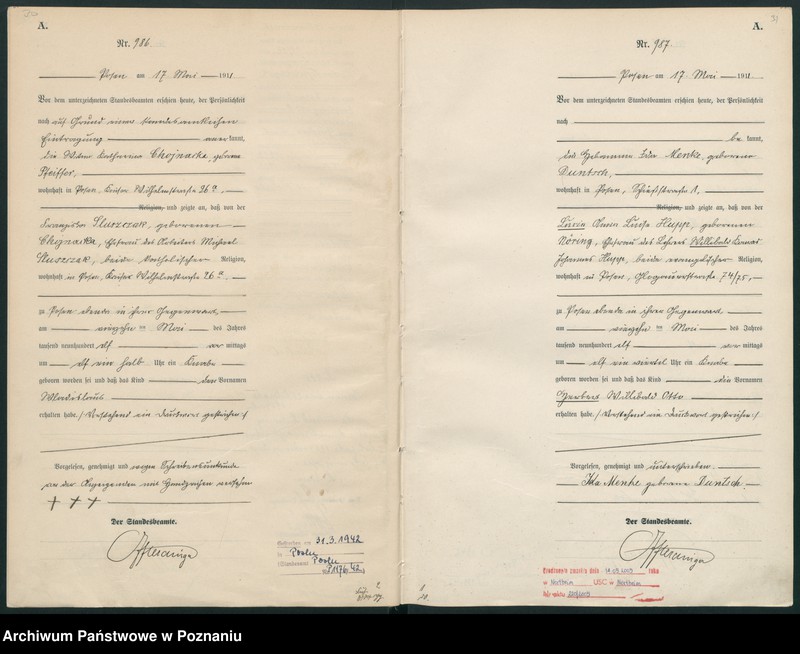 A.
Nr. 986
Posen am 17 Mai 1911
Vor dem unterzeichneten Standesbeamten erschien heute, der Persönlichkeit
nach auf Grund einer standesamtlichen
Eintragung anerkannt,
die Witwe Katharina Chojnacka, geborene
Pfeiffer,
wohnhaft in Posen, Kaiser Wilhelmstraße 26a,
Religion, und zeigte an, daß von der
Franziska Stuszczak, geborenen
Chojnacka, Ehefrau des Arbeiters Michael
Stuszczak, beide katholischer Religion,
wohnhaft in Posen, Kaiser Wilhelmstraße 26a
zu Posen ebenda in ihrer Gegenwart
am vierzehn ten Mai des Jahres
tausend neunhundert elf vor mittags
um elf ein halb Uhr ein Knabe
geboren worden sei und daß das Kind den Vornamen
Wladislaus
erhalten habe. /Vorstehend ein Druckwort gestrichen:/
Vorgelesen, genehmigt und wegen Schreibensunkunde
von der Anzeigenden mit Handzeichen versehen
+ + +
Der Standesbeamte.
Gestorben am 31.3.1942
in Posen
(Standesamt Posen
1176/42)
A.
31
Nr. 987
Posen am 17 Mai 1911
Vor dem unterzeichneten Standesbeamten erschien heute, der Persönlichkeit
nach
be kannt,
die Hebamme Ida Menke, geborene
Duntsch,
wohnhaft in Posen, Schießstraße 1,
Religion, und zeigte an, daß von der
Lucie Anna Luise Hupp, geborenen
Nöring, Ehefrau des Lehrers Willibald Konrad
Johannes Hupp, beide evangelischer Religion,
wohnhaft in Posen, Glogauerstraße 74/75,
zu Posen ebenda in ihrer Gegenwart
am vierzehn ten Mai des Jahres
tausend neunhundert elf vor mittags
um elf ein viertel Uhr ein Knabe
geboren worden sei und daß das Kind die Vornamen
Herbert Willibald Otto
erhalten habe. /Vorstehend ein Druckwort gestrichen:/
Vorgelesen, genehmigt und unterschrieben
Ida Menke geborene Duntsch.
Der Standesbeamte.
roku
w Northeim USC w Northeim
Archiwum Państwowe w Poznaniu